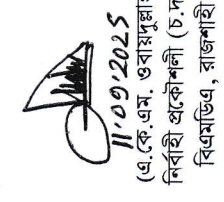 11.09.2025
(এ.কে.এম. ওবায়দুল্লা
নির্বাহী প্রকৌশলী (চ.দ
বিএমডিএ, রাজশাহী